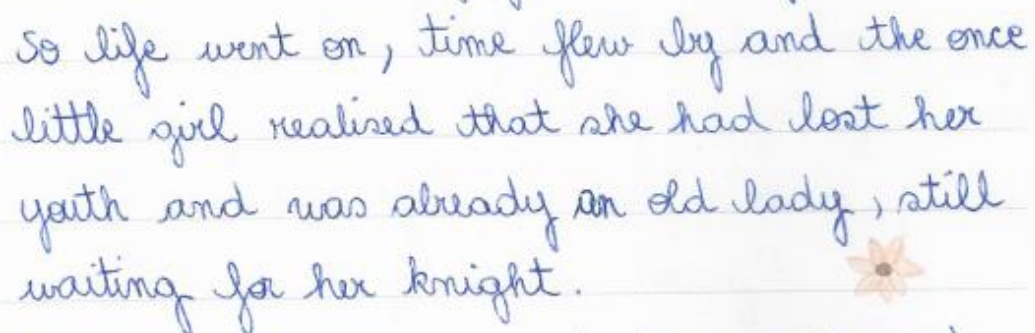 so life went on, time flew by and the once
little girl realised that she had lost her
youth and was already an old lady, still
waiting for her knight.